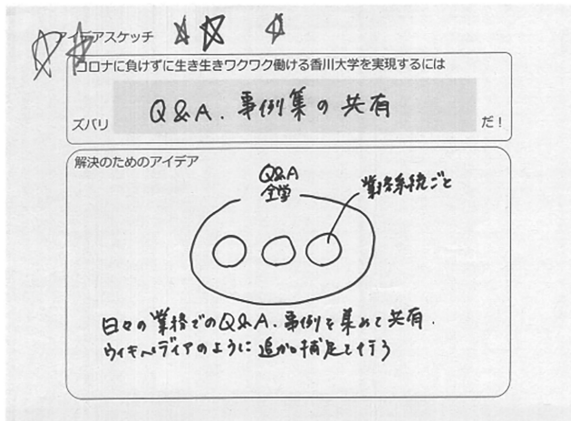 アイデアスケッチ
コロナに負けずに生き生きワクワク働ける香川大学を実現するには
Q&A、事例集の共有
ズバリ
だ!
解決のためのアイデア
Q&A
全学
業務系統ごと
日々の業務でのQ&A、事例を集めて共有.
ウィキペディアのように追加補足を行う